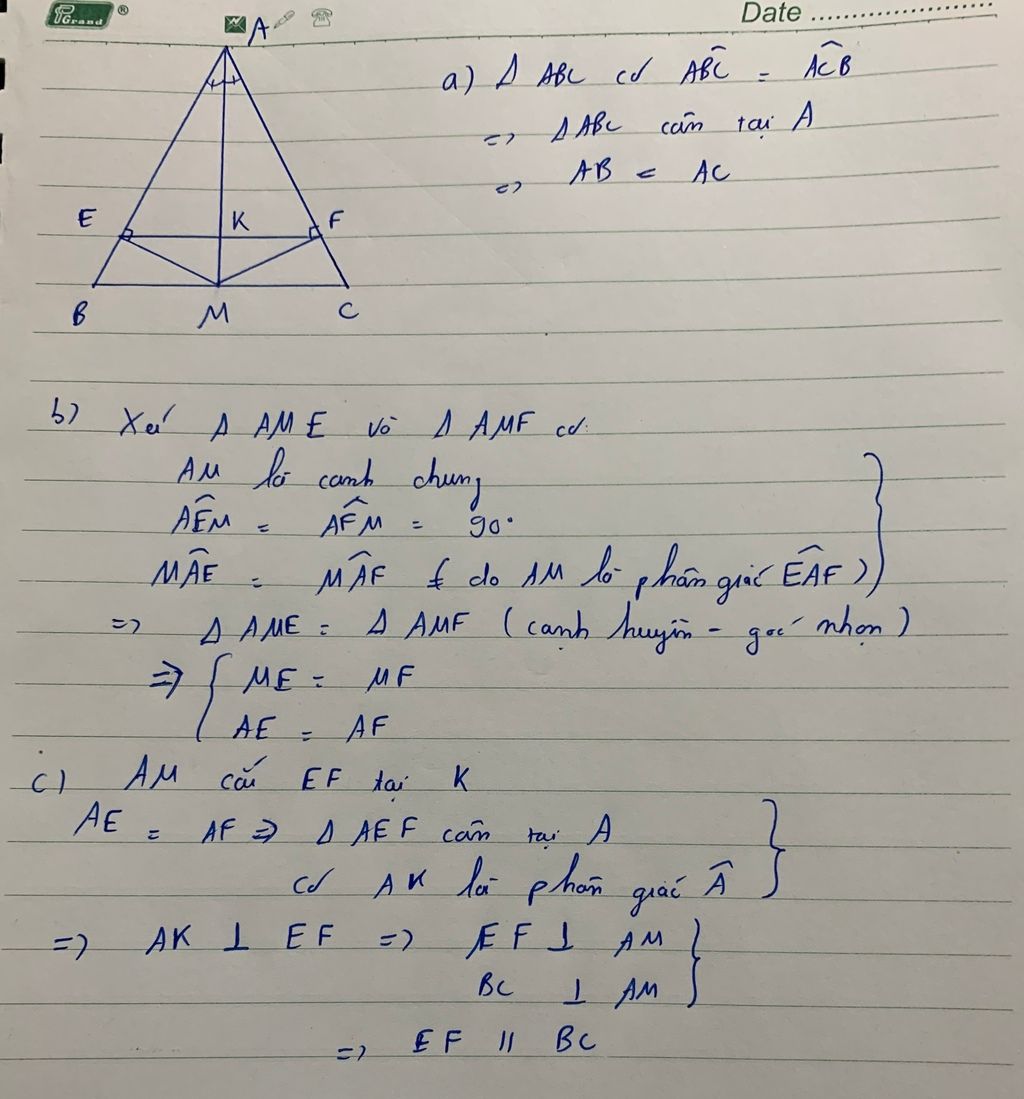 PGrand ®
Date ........................
A
E
K
F
B
M
C
a) Δ ABC có ABC^ = ACB^
=> Δ ABC cân tại A
=> AB = AC
b) Xét Δ AME và Δ AMF có:
AM là cạnh chung
AEM^ = AFM^ = 90°
MAE^ = MAF^ ( do AM là phân giác EAF^ )
=> Δ AME = Δ AMF (cạnh huyền - góc nhọn)
=> { ME = MF
AE = AF
c) AM cắt EF tại K
AE = AF => Δ AEF cân tại A
có AK là phân giác Â
=> AK ⊥ EF => EF ⊥ AM
BC ⊥ AM
=> EF // BC